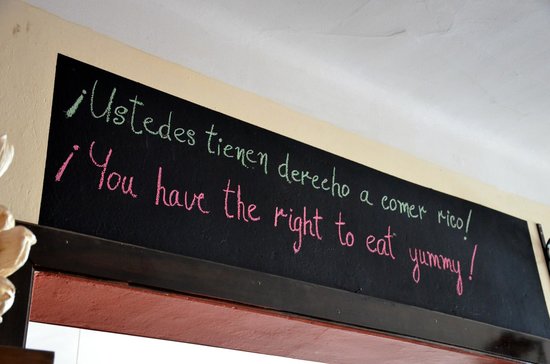 ¡Ustedes tienen derecho a comer rico!
¡You have the right to eat yummy!